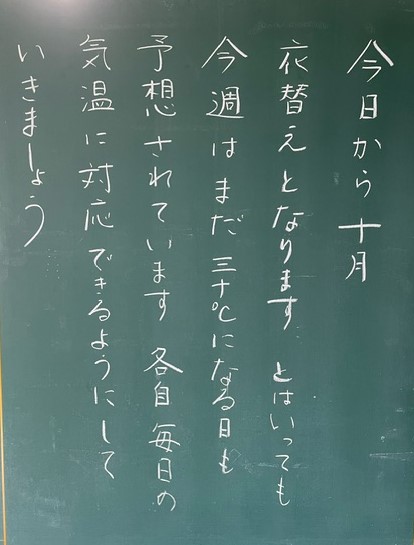 今日から十月
衣替えとなります とはいっても
今週はまだ三十℃になる日も
予想されています 各自毎日の
気温に対応できるようにして
いきましょう